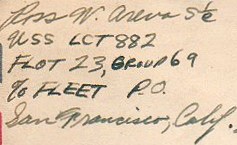 Ross W. Arena S1/c
USS LCT 882
FLOT 23, GROUP 69
c/o FLEET P.O.
San Francisco, Calif.